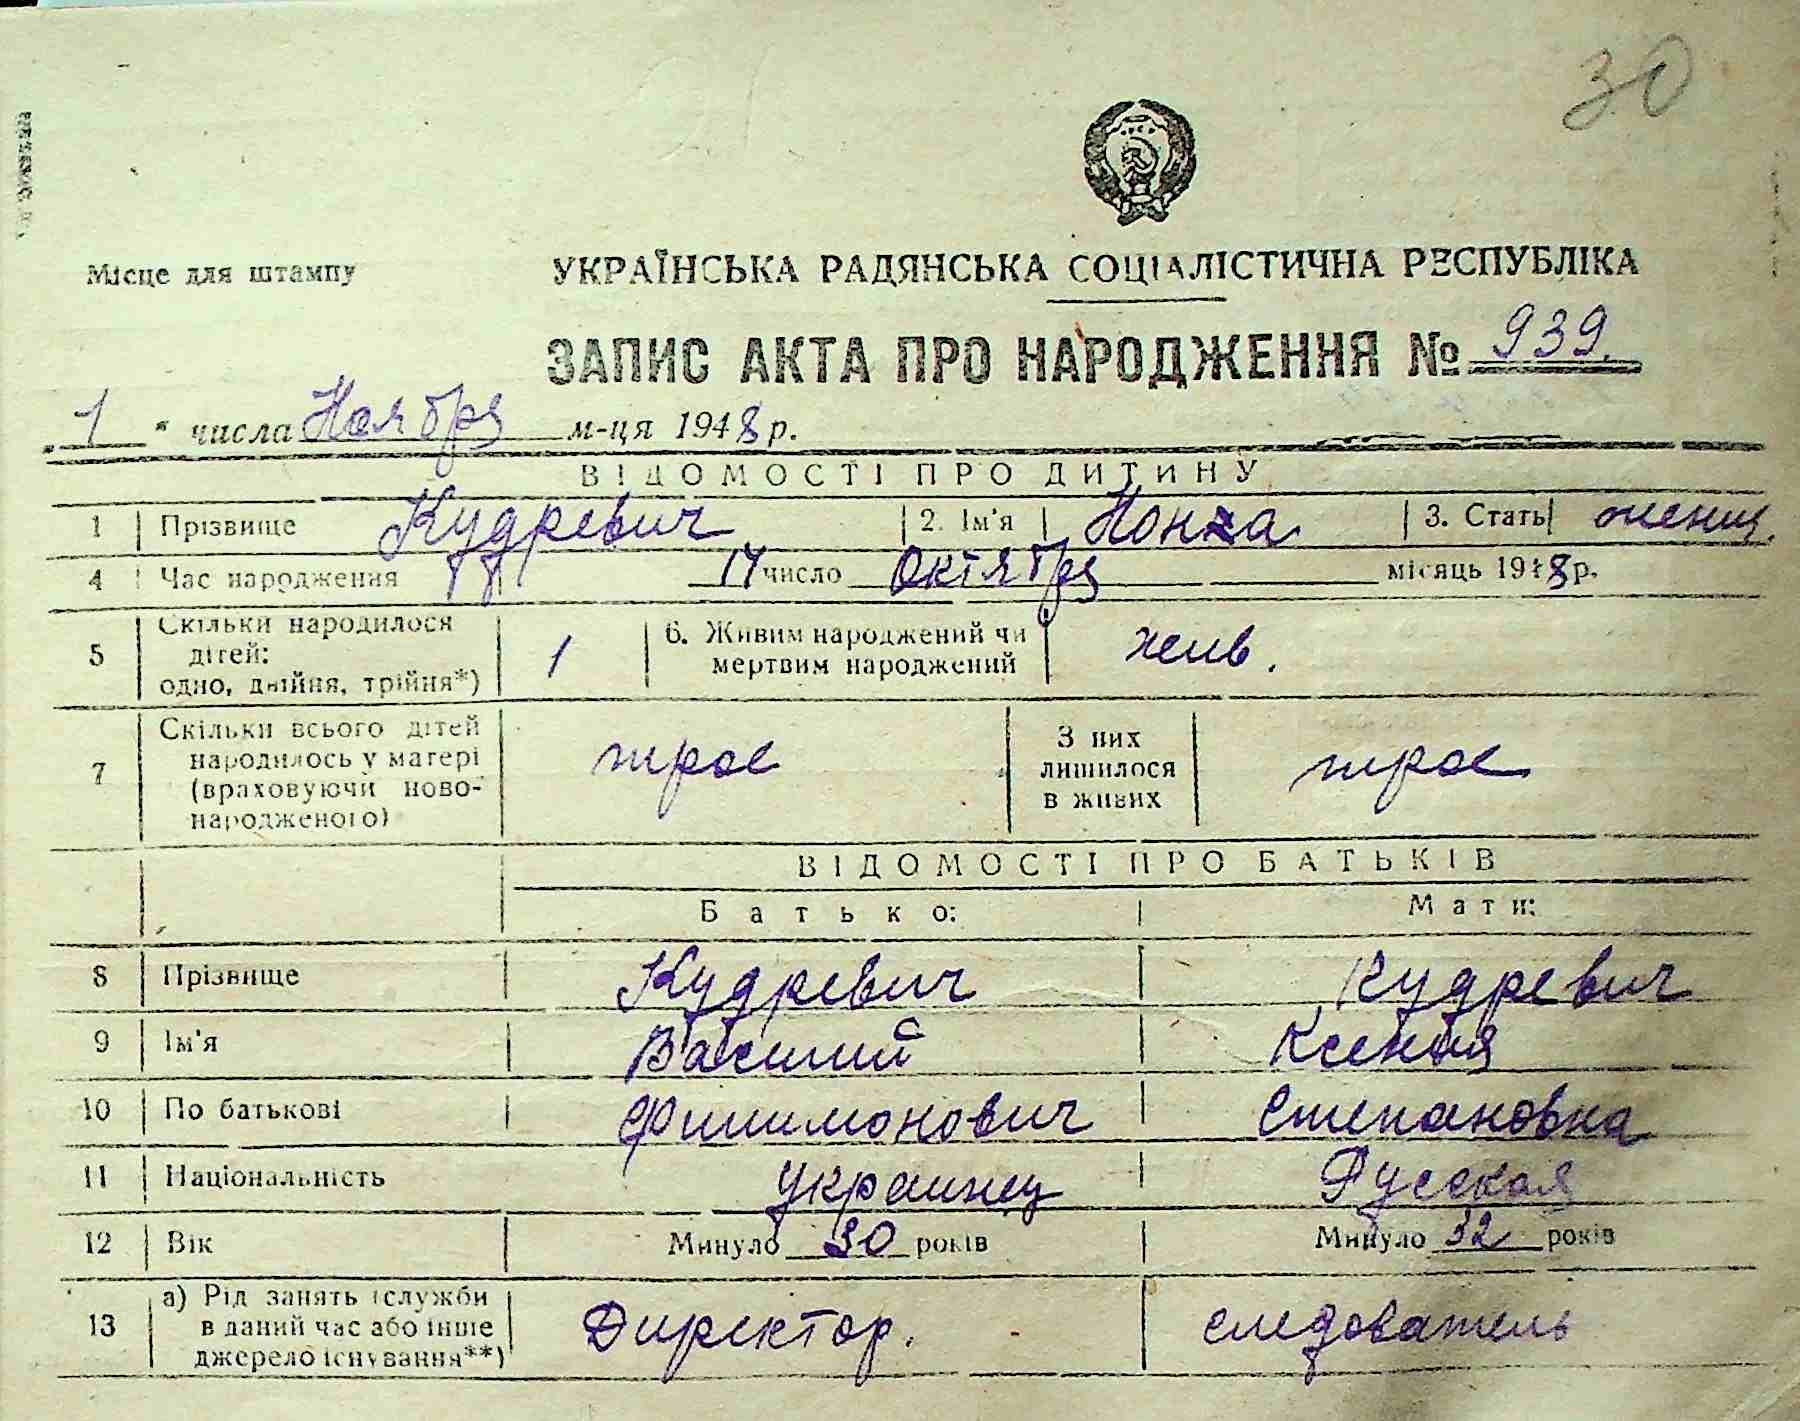 30
Місце для штампу
УКРАЇНСЬКА РАДЯНСЬКА СОЦІАЛІСТИЧНА РЕСПУБЛІКА
ЗАПИС АКТА ПРО НАРОДЖЕННЯ № 939.
„1" числа Ноября м-ця 1948 р.
ВІДОМОСТІ ПРО ДИТИНУ
1 Прізвище Кудревич 2. Ім'я 3. Стать женщ.
4 Час народження 14 число Октября місяць 1948 р.
5 Скільки народилося дітей: одно, двійня, трійня*) 1 6. Живим народжений чи мертвим народжений жив.
7 Скільки всього дітей народилось у матері (враховуючи новонародженого) трое З них лишилося в живих трое
ВІДОМОСТІ ПРО БАТЬКІВ
Батько: Мати:
8 Прізвище Кудревич Кудревич
9 Ім'я Василий Ксения
10 По батькові Филимонович Степановна
11 Національність Украинец Русская
12 Вік Минуло 30 років Минуло 32 років
13 а) Рід занять (служби в даний час або інше джерело існування**) Директор. следователь